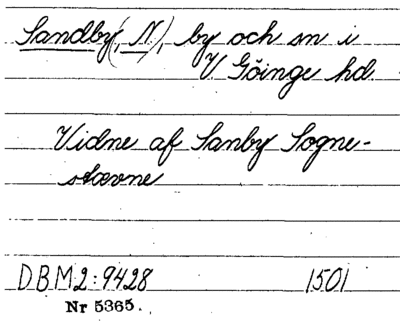 Sandby(, N), by och sn i
V Göinge hd.
Vidne af Sanby Sogne-
stævne
DBM2:9428 1501
Nr 5365.